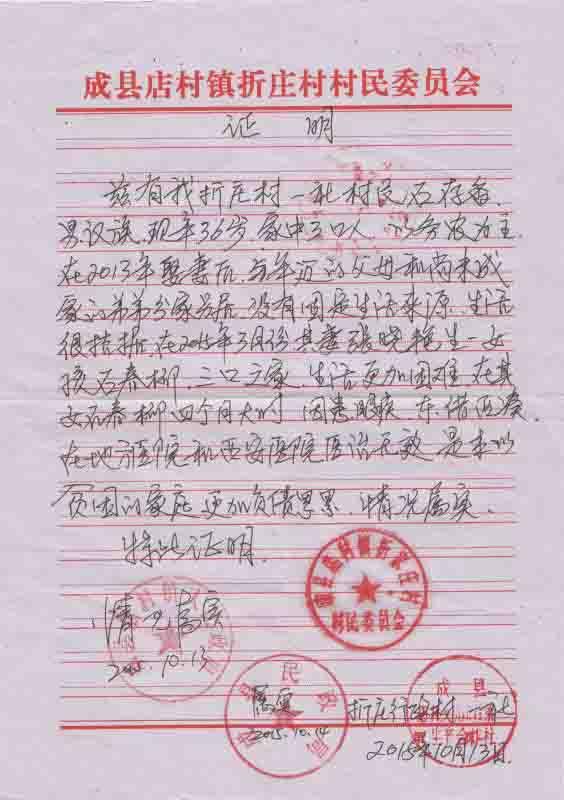 成县店村镇折庄村村民委员会
证 明
兹有我折庄村一社村民石存备,
男汉族,现年36岁,家中三口人,以务农为主,
在2013年娶妻后,与年迈的父母和尚未成
家的弟弟分家另居,没有固定生活来源,生活
很拮据,在2015年3月份其妻张晓艳生一女
孩石春柳,三口之家,生活更加困难,在其
女石春柳四个月大时,因患眼疾,东借西凑,
在地方医院和西安医院医治无效,是本以
贫困的家庭更加负债累累,情况属实,
特此证明.
情况属实
2015.10.13
村民委员会
属实
2015.10.14
成县
折庄行政村一社
2015年10月13日.